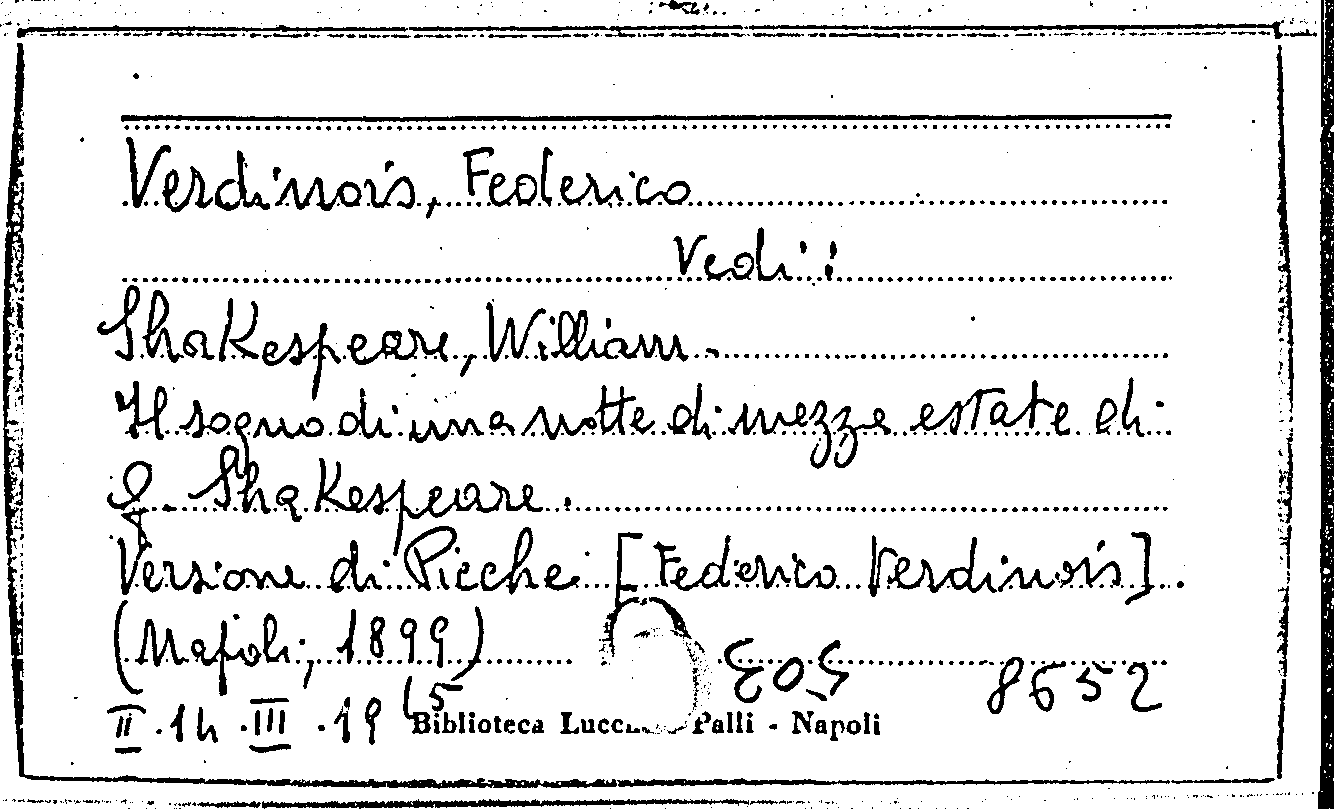 Verdinois, Federico
Vedi:
Shakespeare, William.
Il sogno di una notte di mezza estate di
G. Shakespeare.
Versione di Picche [Federico Verdinois].
(Napoli, 1899)
8652
II.14.III.19 (5
Biblioteca Palli - Napoli